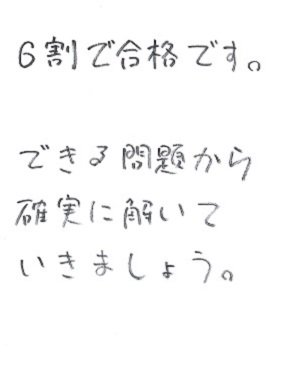 6割で合格です。
できる問題から
確実に解いて
いきましょう。